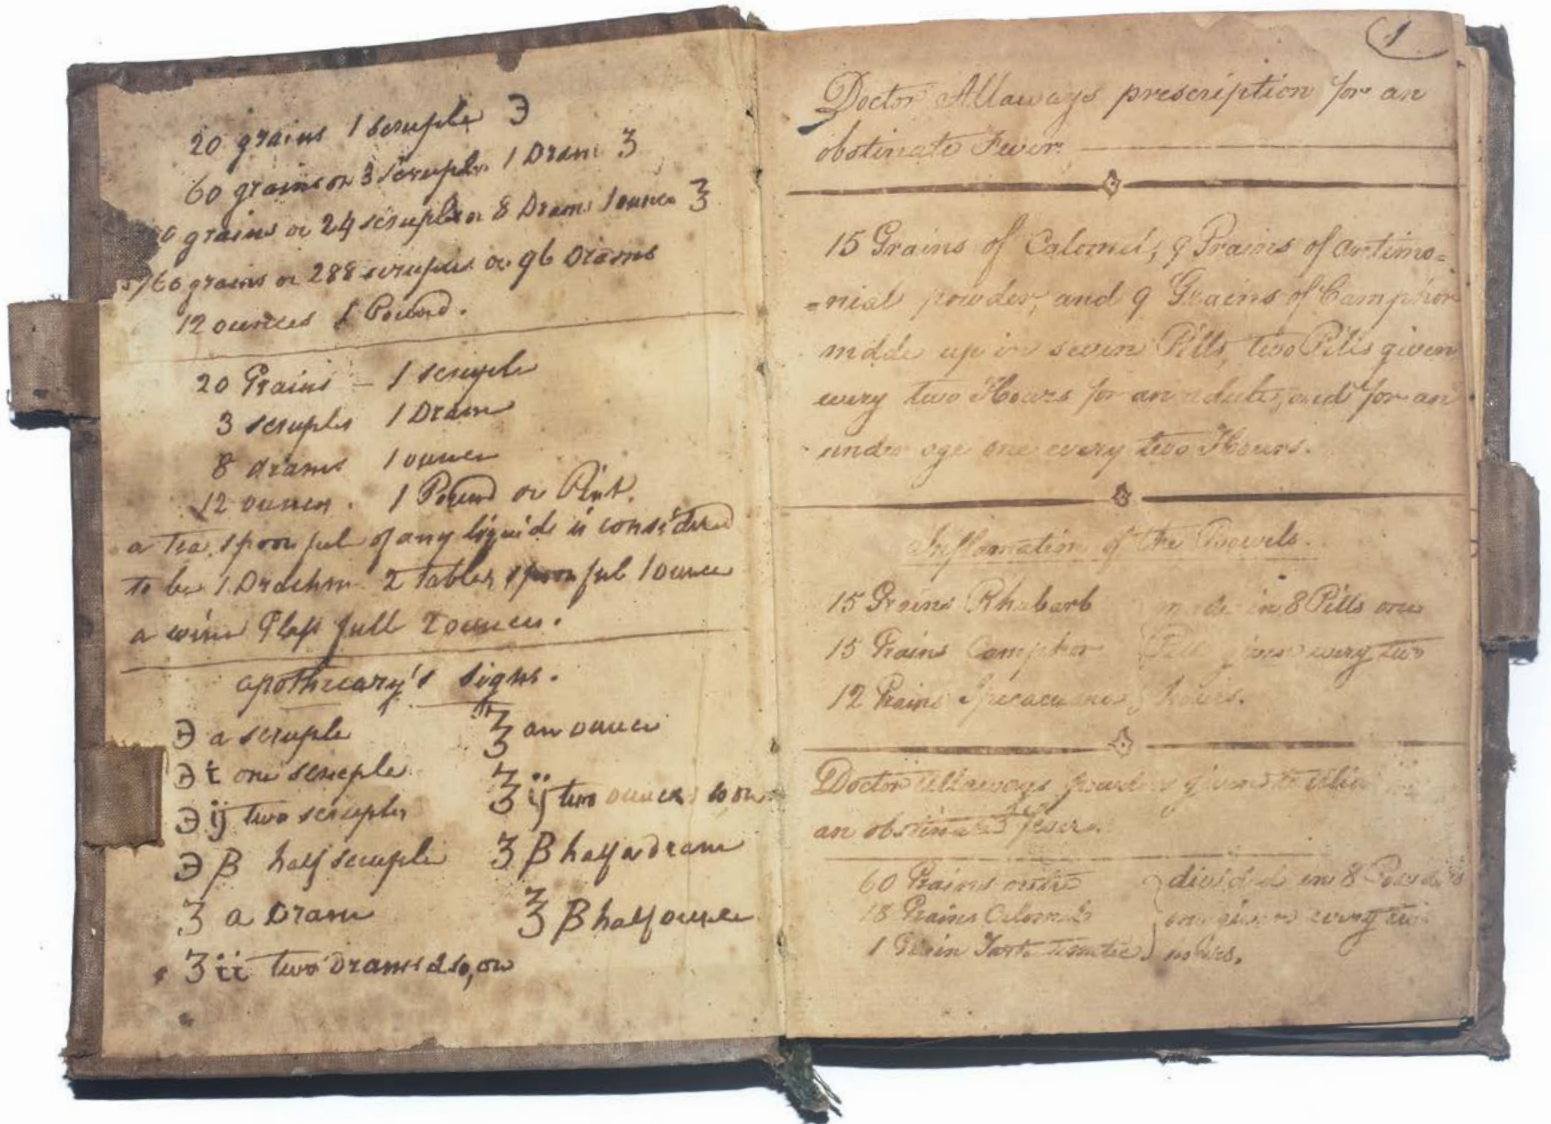 20 grains 1 scruple ℈
60 grains or 3 scruples 1 Dram ʒ
0 grains or 24 scruples or 8 Drams 1 ounce ℥
5760 grains or 288 scruples or 96 Drams
12 ounces 1 Pound.
20 Grains – 1 scruple
3 scruples 1 Dram
8 drams 1 ounce
12 ounces . 1 Pound or Pint.
a Tea spoonful of any liquid is considered
to be 1 Drachm 2 Tables spoonful 1 ounce
a wine Glass full 2 ounces.
apothecary's signs.
℈ a scruple
℈ i one scruple
℈ ij two scruples
℈ β half scruple
ʒ a Dram
ʒ ii two Drams & so, on
℥ an ounce
℥ ij two ounces so on
ʒ β half a dram
℥ β half ounce
1
Doctor Allaways prescription for an
obstinate Fever.
15 Grains of Calomel, 9 Grains of antimo=
=nial powder, and 9 Grains of Camphor
made up in seven Pills, two Pills given
every two Hours for an adult, and for an
under age one every two Hours.
Inflamation of the Bowels.
15 Grains Rhubarb
15 Grains Camphor
12 Grains Ipecacuana
made in 8 Pills one
Pill given every two
hours.
Doctor Allaways powders given to
an obstinate fever.
60 Grains nitre
18 Grains Calomel
1 Grain Tart. Emetic
divided in 8 Powders
one given every two
hours.